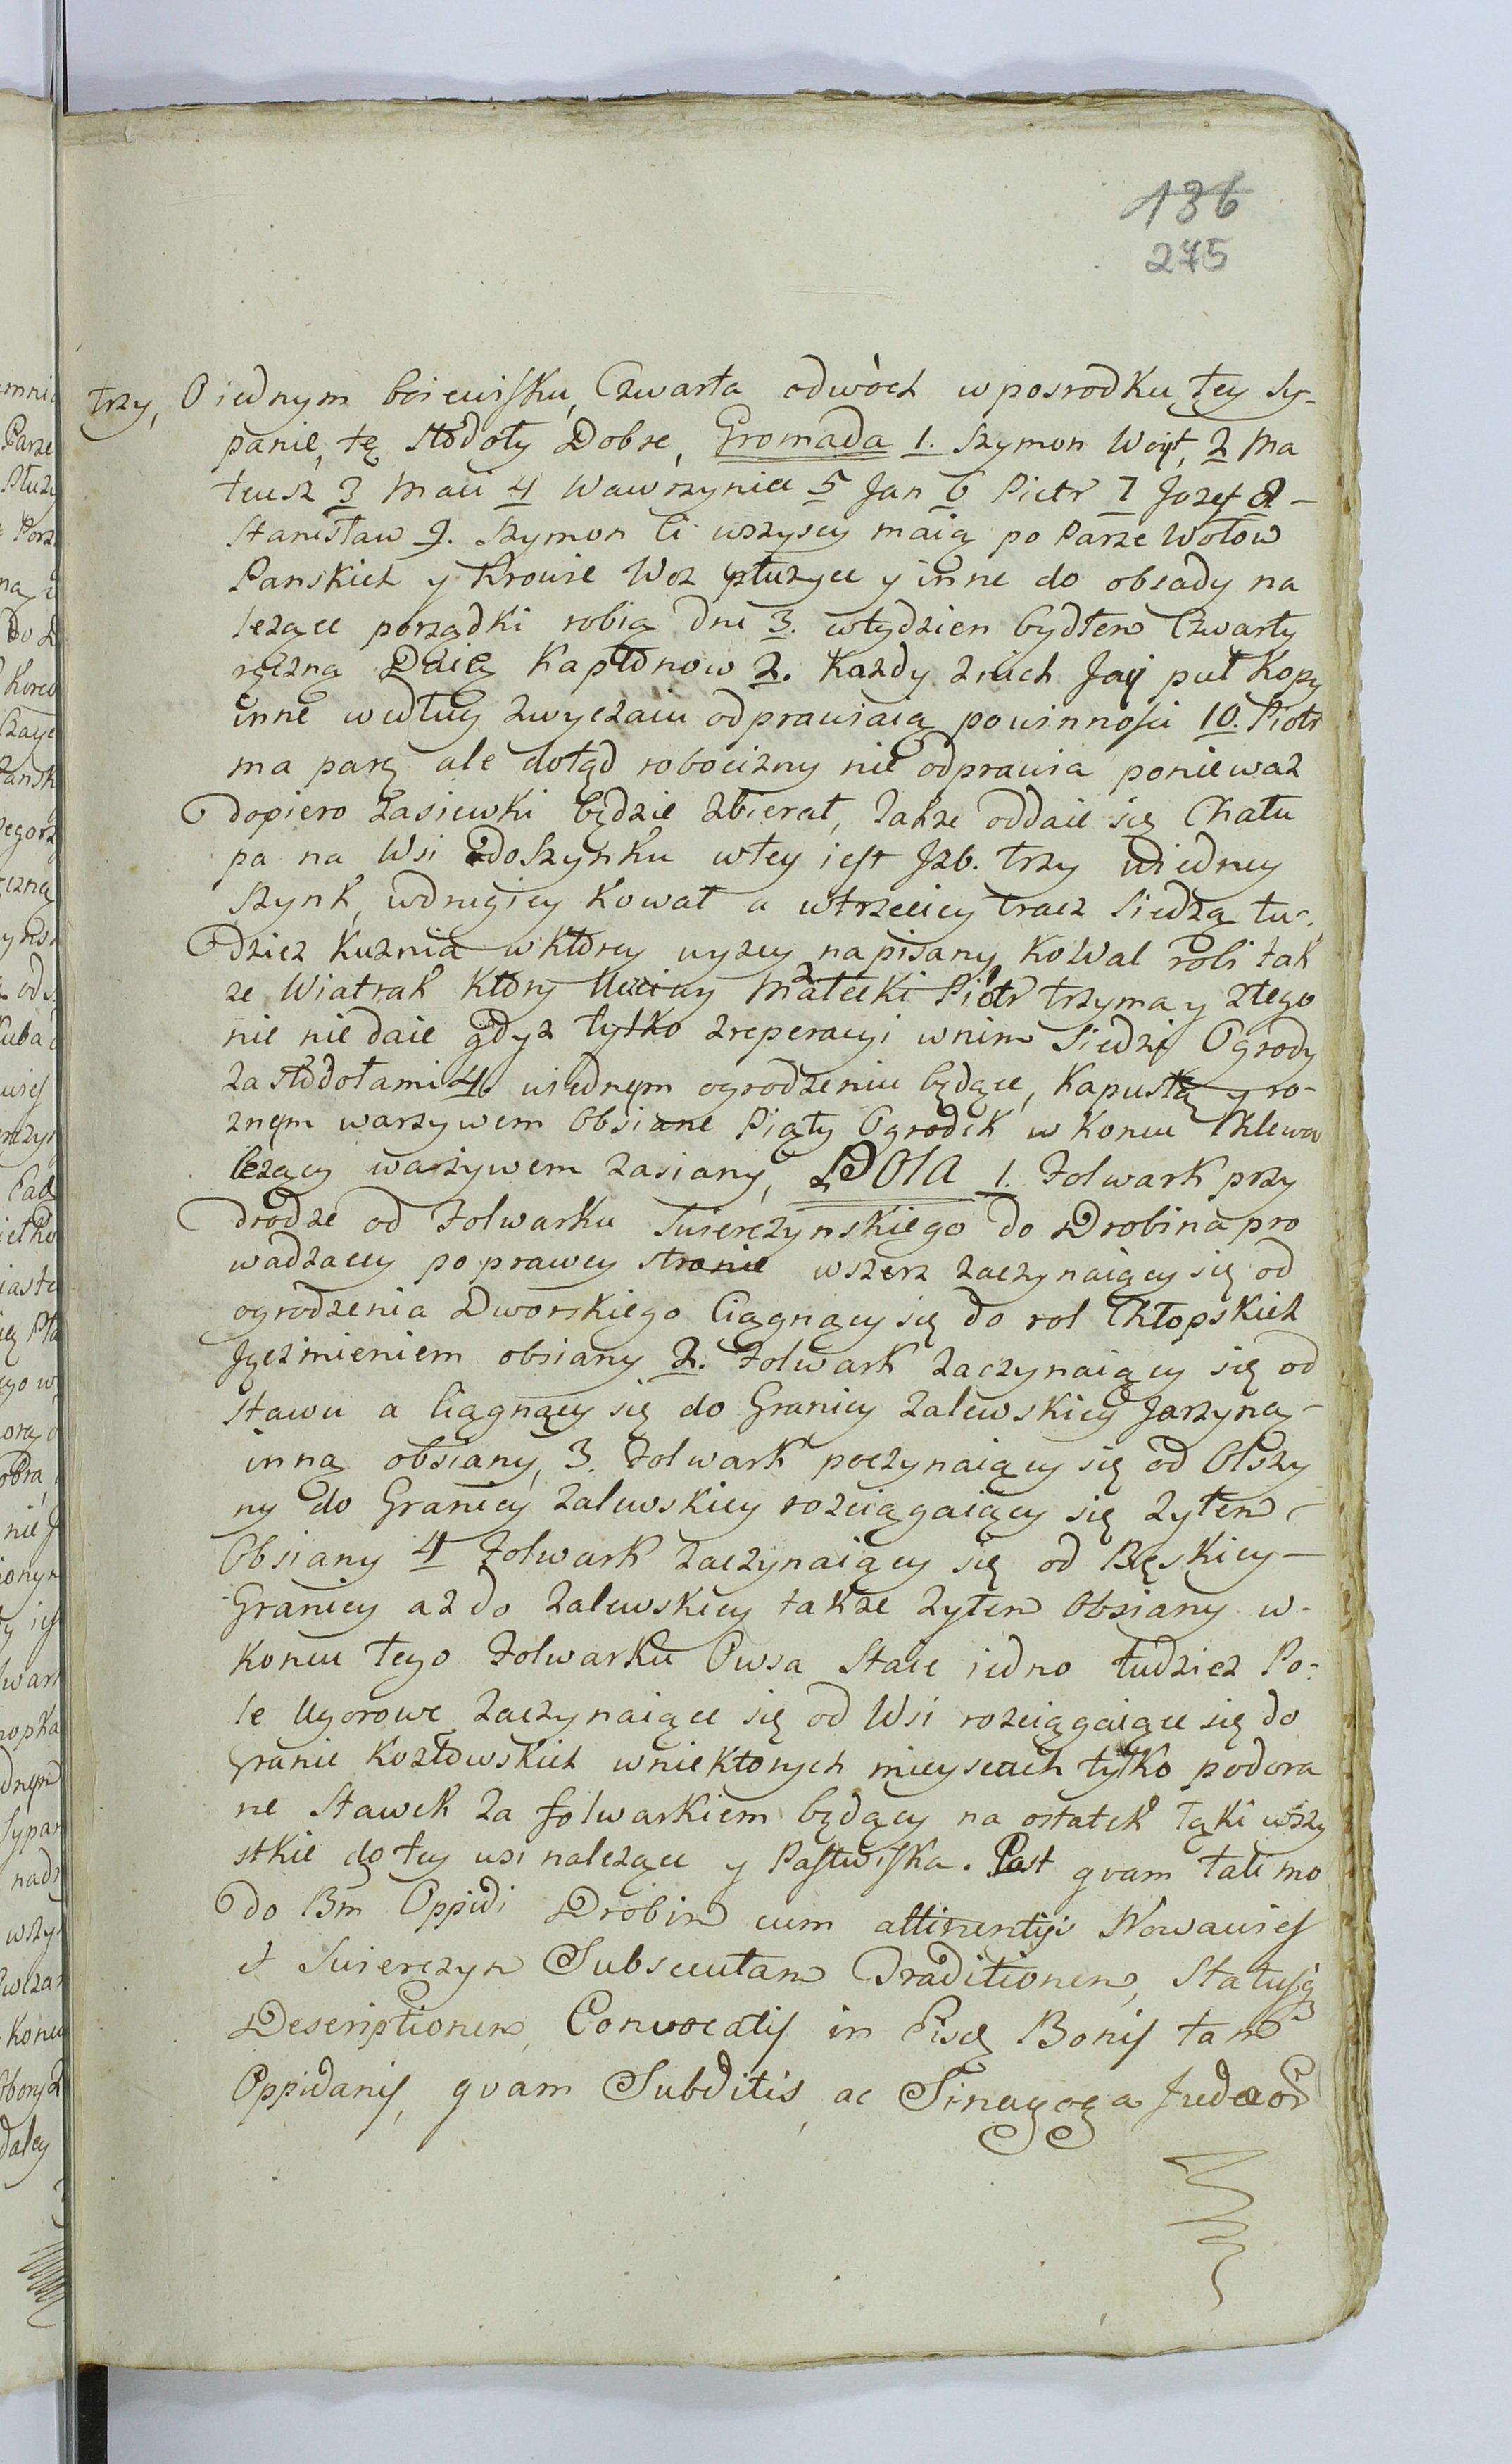 186
275
trzy, O iednym boiewisku, Czwarta odwoch wposrodku tey Sy-
panie, tę Stodoły Dobre, Gromada 1. Szymon Woyt, 2 Ma
teusz 3 Maci 4 Wawrzyniec 5 Jan 6 Piotr 7 Jozef 8 -
Stanisław 9. Szymon Ci wszyscy maią po Parze Wołow
Panskich y Krowie Woz płużyce y inne do obsady na
leżące porządki robią Dni 3. wtydzien bydłem Czwarty
ręczną Daią Kapłonow 2. Każdy znich Jay puł Kopy
inne według zwyczaiu odprawiaią powinności 10. Piotr
ma parę ale dotąd robocizny nie odprawia ponieważ
dopiero zasiewki będzie zbierał, Także oddaie się Chału
pa na Wsi doSzynku wtey iest Jzb. trzy wiedney
Szynk, wdrugiey Kował a wtrzeciey tracz Siedzą tu-
dziez Kuznia wktorey wyzey napisany KoWal robi tak
ze Wiatrak Ktory Małecki Piotr trzyma y ztego
nic nie daie gdyz tylko zreperacyi wnim Siedzi Ogrody
za Stodołami 4. wiednym ogrodzeniu będące, Kapustą y ro-
znym warzywem Obsiane Piąty Ogrodek w Koncu Chlewa
leżący warzywem zasiany, POLA 1. Folwark przy
drodze od Folwarku Swierczynskiego do Drobina pro
wadzącey po prawey stronie wszerz zaczynaiący się od
ogrodzenia Dworskiego Ciągnący się do rol Chłopskich
Jęczmieniem obsiany 2. Folwark zaczynaiący się od
Stawu a Ciągnący się do Granicy zalewskiey Jarzyną -
inną obsiany, 3. Folwark poczynaiący się od Olszy
ny do Granicy zalewskiey rozciągaiący się zytem -
Obsiany 4 Folwark zaczynaiący się od Bęskiey -
Granicy az do zalewskiey takze zytem Obsiany w-
Koncu tego Folwarku Owsa Staie iedno tudziez Po-
le Ugorowe zaczynaiące się od Wsi rozciągaiące się do
Granic Kozłowskich wniektorych mieyscach tylko podora
ne Stawek za folwarkiem będący na ostatek łąki wszy
stkie do tey wsi nalezące y Pastwiska. Post qvam tali mo
do Bm Oppidi Drobin cum attinentijs Nowawies
et Swierczyn Subsecutam Traditionem, Statusq
Descriptionem, Convocatis in Eisd Bonis tam
Oppidanis, qvam Subditis, ac Sinagoga Judaeor